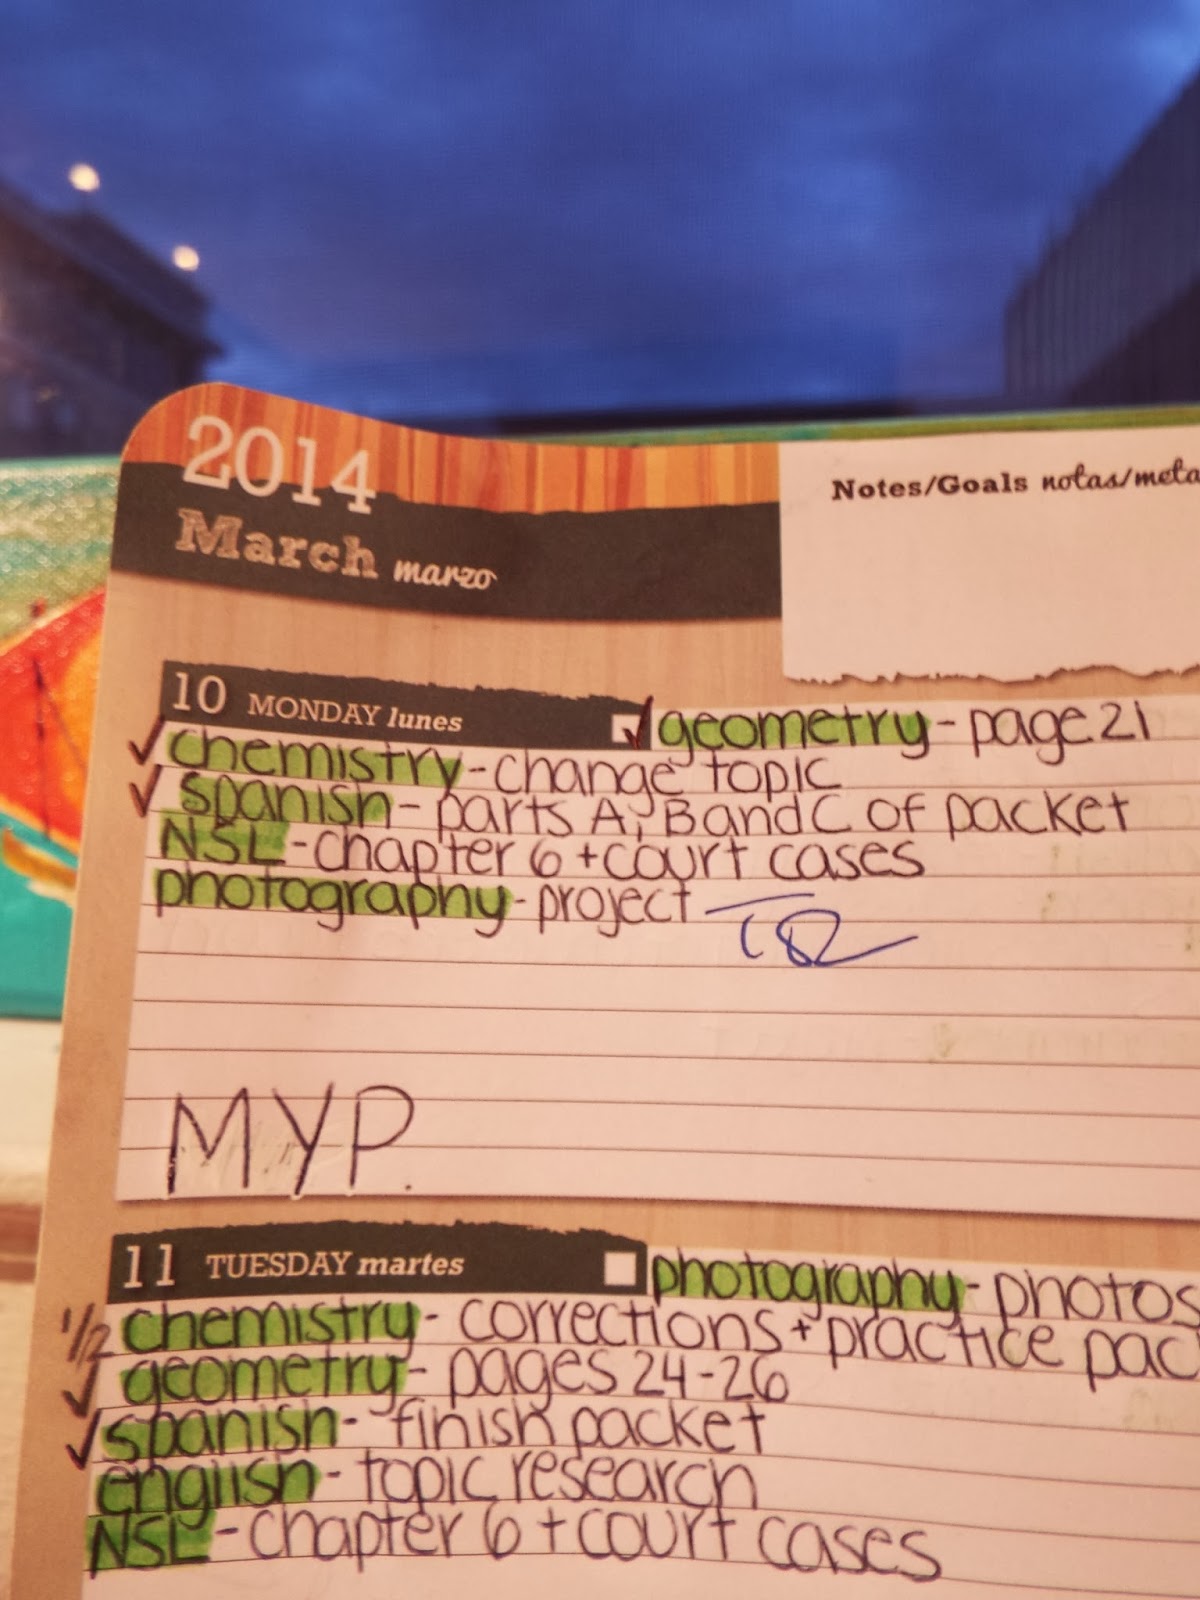 2014
March marzo
Notes/Goals notas/meta
10 MONDAY lunes
✓ geometry - page 21
✓ chemistry - change topic
✓ spanish - parts A, B and C of packet
NSL - chapter 6 + court cases
photography - project
MYP.
11 TUESDAY martes
photography - photos
1/2 chemistry - corrections + practice pac
✓ geometry - pages 24-26
✓ spanish - finish packet
english - topic research
NSL - chapter 6 + court cases